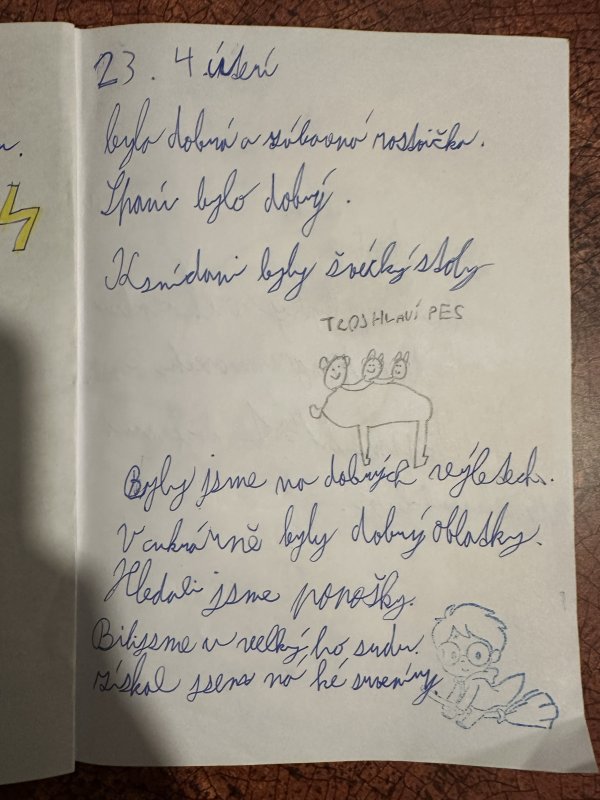 23. 4 úterí
byla dobrá a zábavná rostvička.
Spaní bylo dobrý.
K snídani byly švécký stoly
TROJHLAVÍ PES
Byly jsme na dobrých výletech.
V cukrárně byly dobrý oblatky.
Hledali jsme ponožky.
Bili jsme u velkýho sudu.
získal jsem ná ké suvenýry